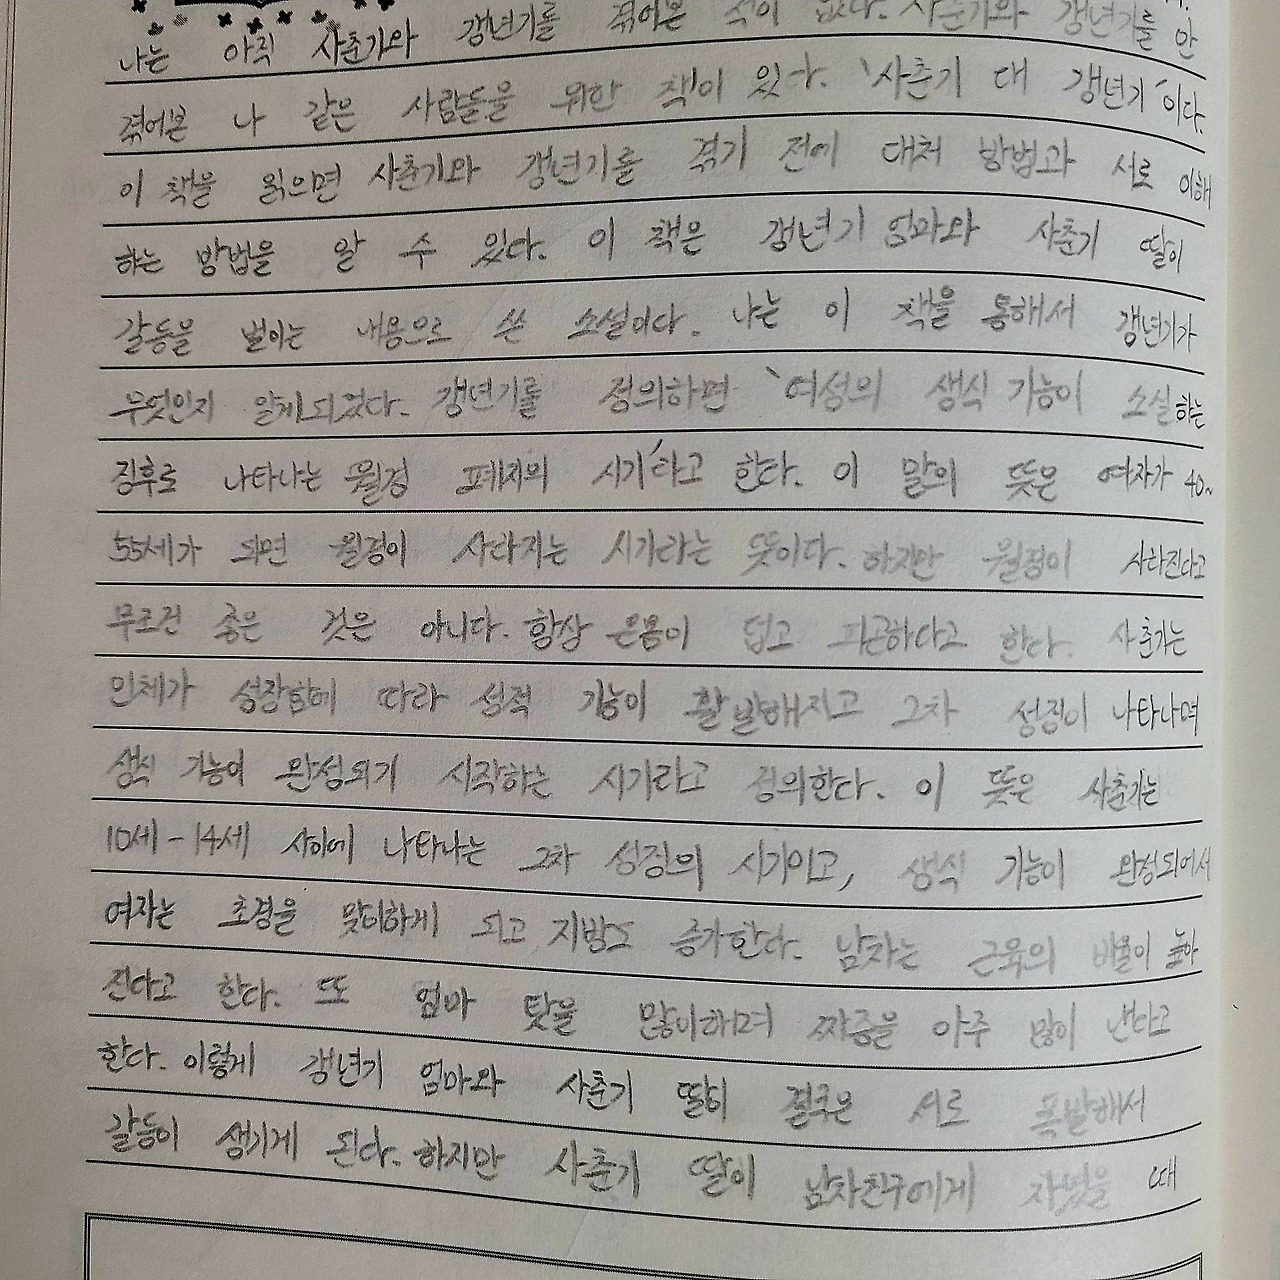 나는 아직 사춘기와 갱년기를 겪어본 적이 없다. 사춘기와 갱년기를 안
겪어본 나 같은 사람들을 위한 책이 있다. '사춘기 대 갱년기'이다.
이 책을 읽으면 사춘기와 갱년기를 겪기 전에 대처 방법과 서로 이해
하는 방법을 알 수 있다. 이 책은 갱년기 엄마와 사춘기 딸이
갈등을 벌이는 내용으로 쓴 소설이다. 나는 이 책을 통해서 갱년기가
무엇인지 알게되었다. 갱년기를 정의하면 '여성의 생식 기능이 소실하는
징후로 나타나는 월경 폐지의 시기'라고 한다. 이 말의 뜻은 여자가 40~
55세가 되면 월경이 사라지는 시기라는 뜻이다. 하지만 월경이 사라진다고
무조건 좋은 것은 아니다. 항상 온몸이 덥고 피곤하다고 한다. 사춘기는
인체가 성장함에 따라 성적 기능이 활발해지고 2차 성징이 나타나며
생식 기능이 완성되기 시작하는 시기라고 정의한다. 이 뜻은 사춘기는
10세-14세 사이에 나타나는 2차 성징의 시기이고, 생식 기능이 완성되어서
여자는 초경을 맞이하게 되고 지방도 증가한다. 남자는 근육의 비율이 높아
진다고 한다. 또 엄마 탓을 많이하며 짜증을 아주 많이 낸다고
한다. 이렇게 갱년기 엄마와 사춘기 딸이 결국은 서로 폭발해서
갈등이 생기게 된다. 하지만 사춘기 딸이 남자친구에게 차였을 때